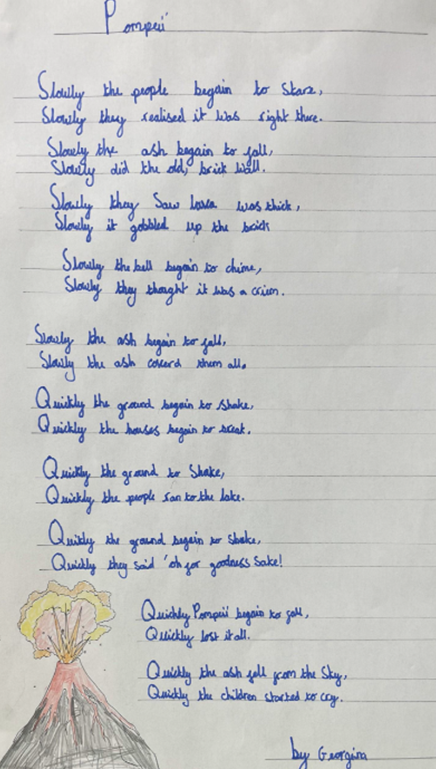 Pompeii
Slowly the people begain to stare,
Slowly they realised it was right there.
Slowly the ash begain to fall,
Slowly did the old, brick wall.
Slowly they saw lava was thick,
Slowly it gobbled up the brick
Slowly the bell begain to chime,
Slowly they thought it was a criem.
Slowly the ash begain to fall,
Slowly the ash coverd them all.
Quickly the ground begain to shake,
Quickly the houses begain to break.
Quickly the ground to shake,
Quickly the people ran to the lake.
Quikly the ground begain to shake,
Quickly they said 'oh for goodness sake!
Quickly Pompeii begain to fall,
Quickly lost it all.
Quickly the ash fell from the sky,
Quickly the children started to cry.
by Georgina